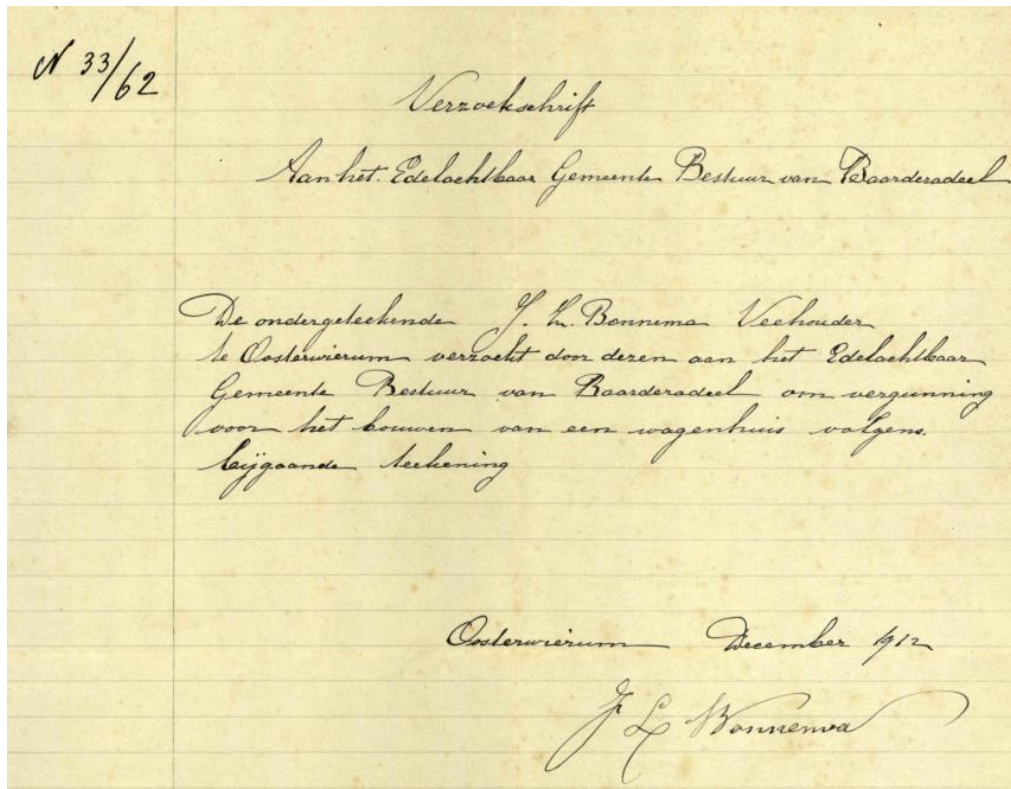 N 33/62
Verzoekschrift
Aan het. Edelachtbaar Gemeente Bestuur van Baarderadeel
De ondergeteekende J. L. Bonnema Veehouder
te Oosterwierum verzoekt door dezen aan het Edelachtbaar
Gemeente Bestuur van Baarderadeel om vergunning
voor het bouwen van een wagenhuis volgens.
bijgaande teekening
Oosterwierum December 1912
J L Bonnema